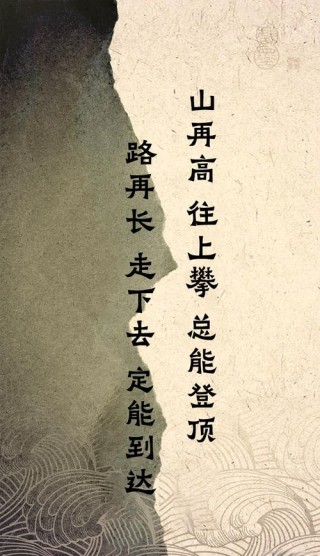 山再高 往上攀 总能登顶
路再长 走下去 定能到达